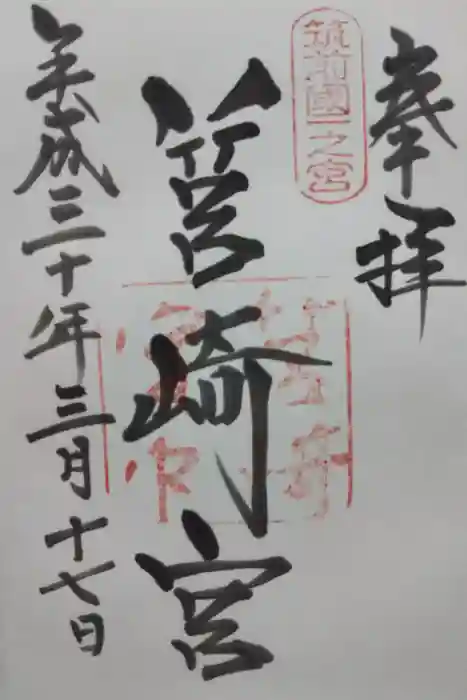 奉拝
筑前國一之宮
筥崎宮
平成三十年三月十七日